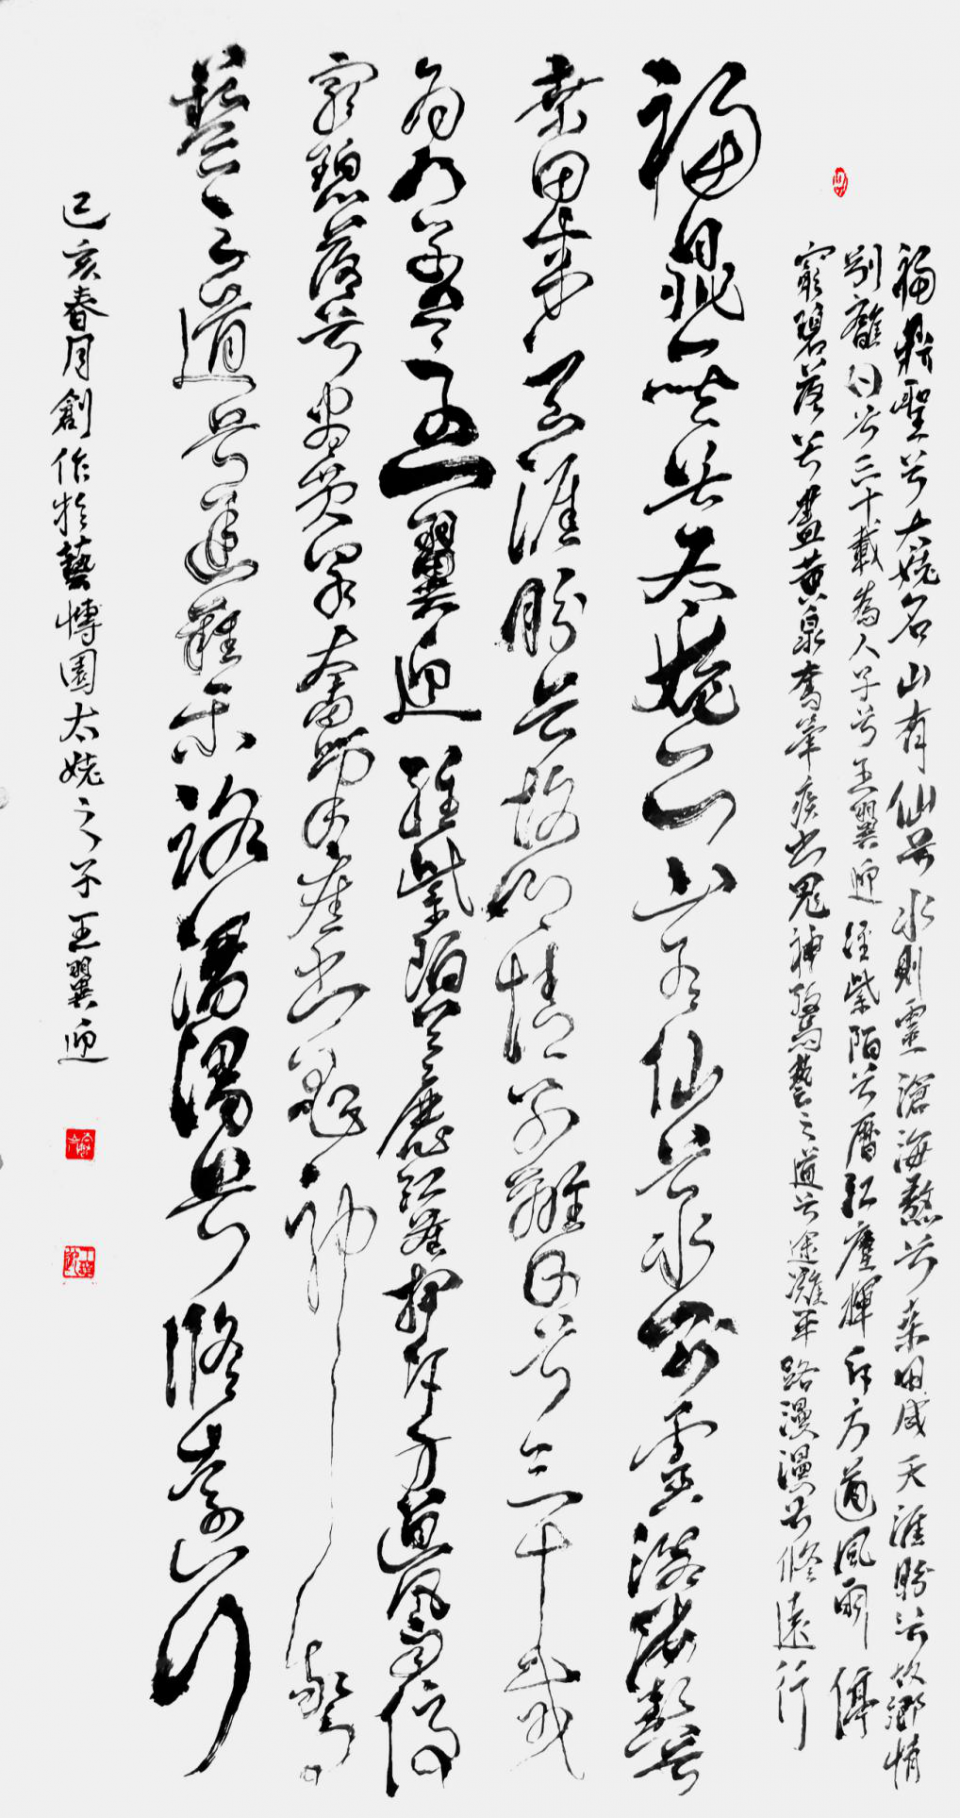 福鼎聖兮太姥名山有仙兮水則靈滄海懋兮桑田成天涯盼兮故鄉情
別離日兮三十載為人子兮王翼迎經紫陌兮歷紅塵揮斥方遒風雨停
窮碧落兮盡黃泉奮筆疾書鬼神驚藝之道兮途難平路漫漫兮修遠行
福鼎聖兮太姥名山有仙兮水則靈滄海懋兮
桑田成天涯盼兮故鄉情別離日兮三十載
為人子兮王翼迎經紫陌兮歷紅塵揮斥方遒風雨停
窮碧落兮盡黃泉奮筆疾書鬼神驚
藝之道兮途難平路漫漫兮修遠行
己亥春月創作於藝博園太姥之子王翼迎